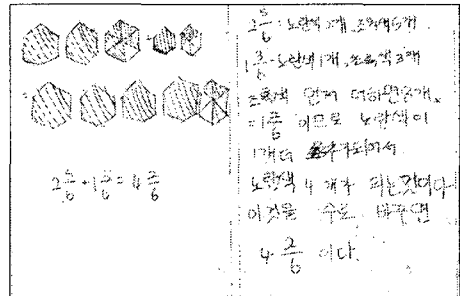 2 5/6 + 1 3/6 = 4 2/6
2 5/6 : 노란색 2개, 초록색 5개
1 3/6 : 노란색 1개, 초록색 3개
초록색 먼저 더하면 8개
= 1 2/6 이므로 노란색이
1개 더 추가되어서
노란색 4 개가 되는것이다
이것을 수로 바꾸면
4 2/6 이다.